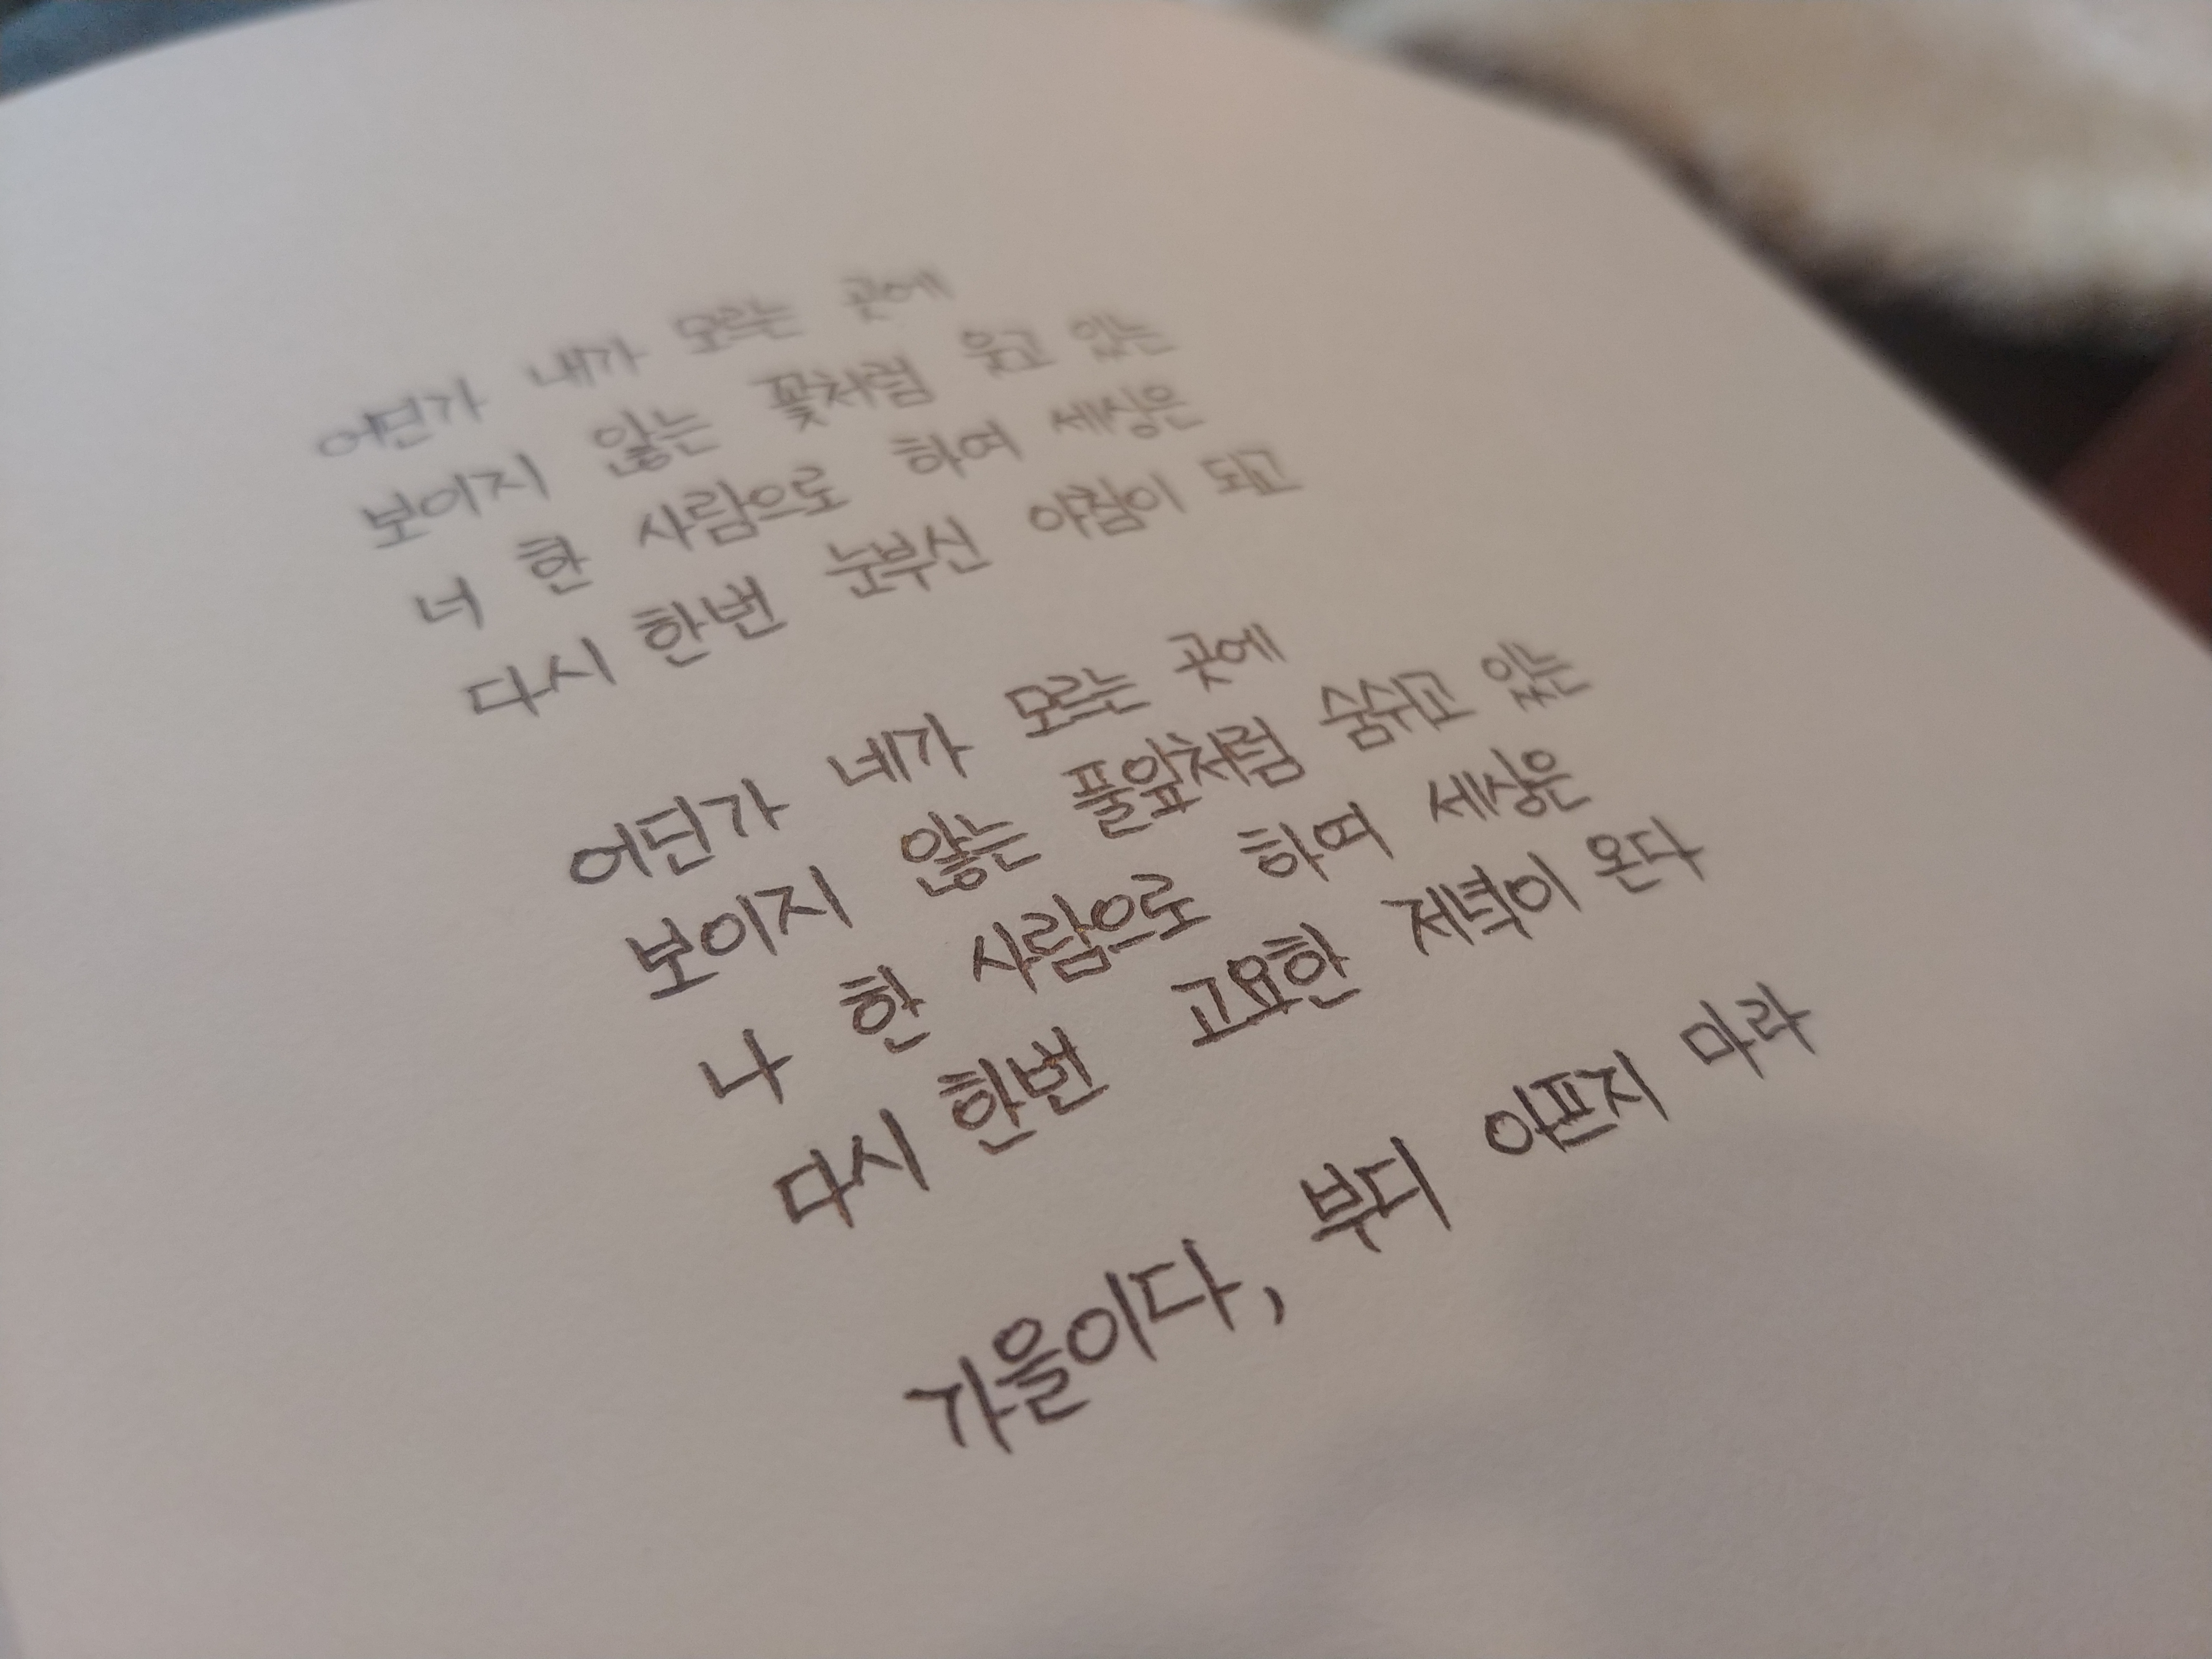 어딘가 내가 모르는 곳에
보이지 않는 꽃처럼 웃고 있는
너 한 사람으로 하여 세상은
다시 한번 눈부신 아침이 되고
어딘가 네가 모르는 곳에
보이지 않는 풀앞처럼 숨쉬고 있는
나 한 사람으로 하여 세상은
다시 한번 고요한 저녁이 온다
가을이다, 부디 아프지 마라